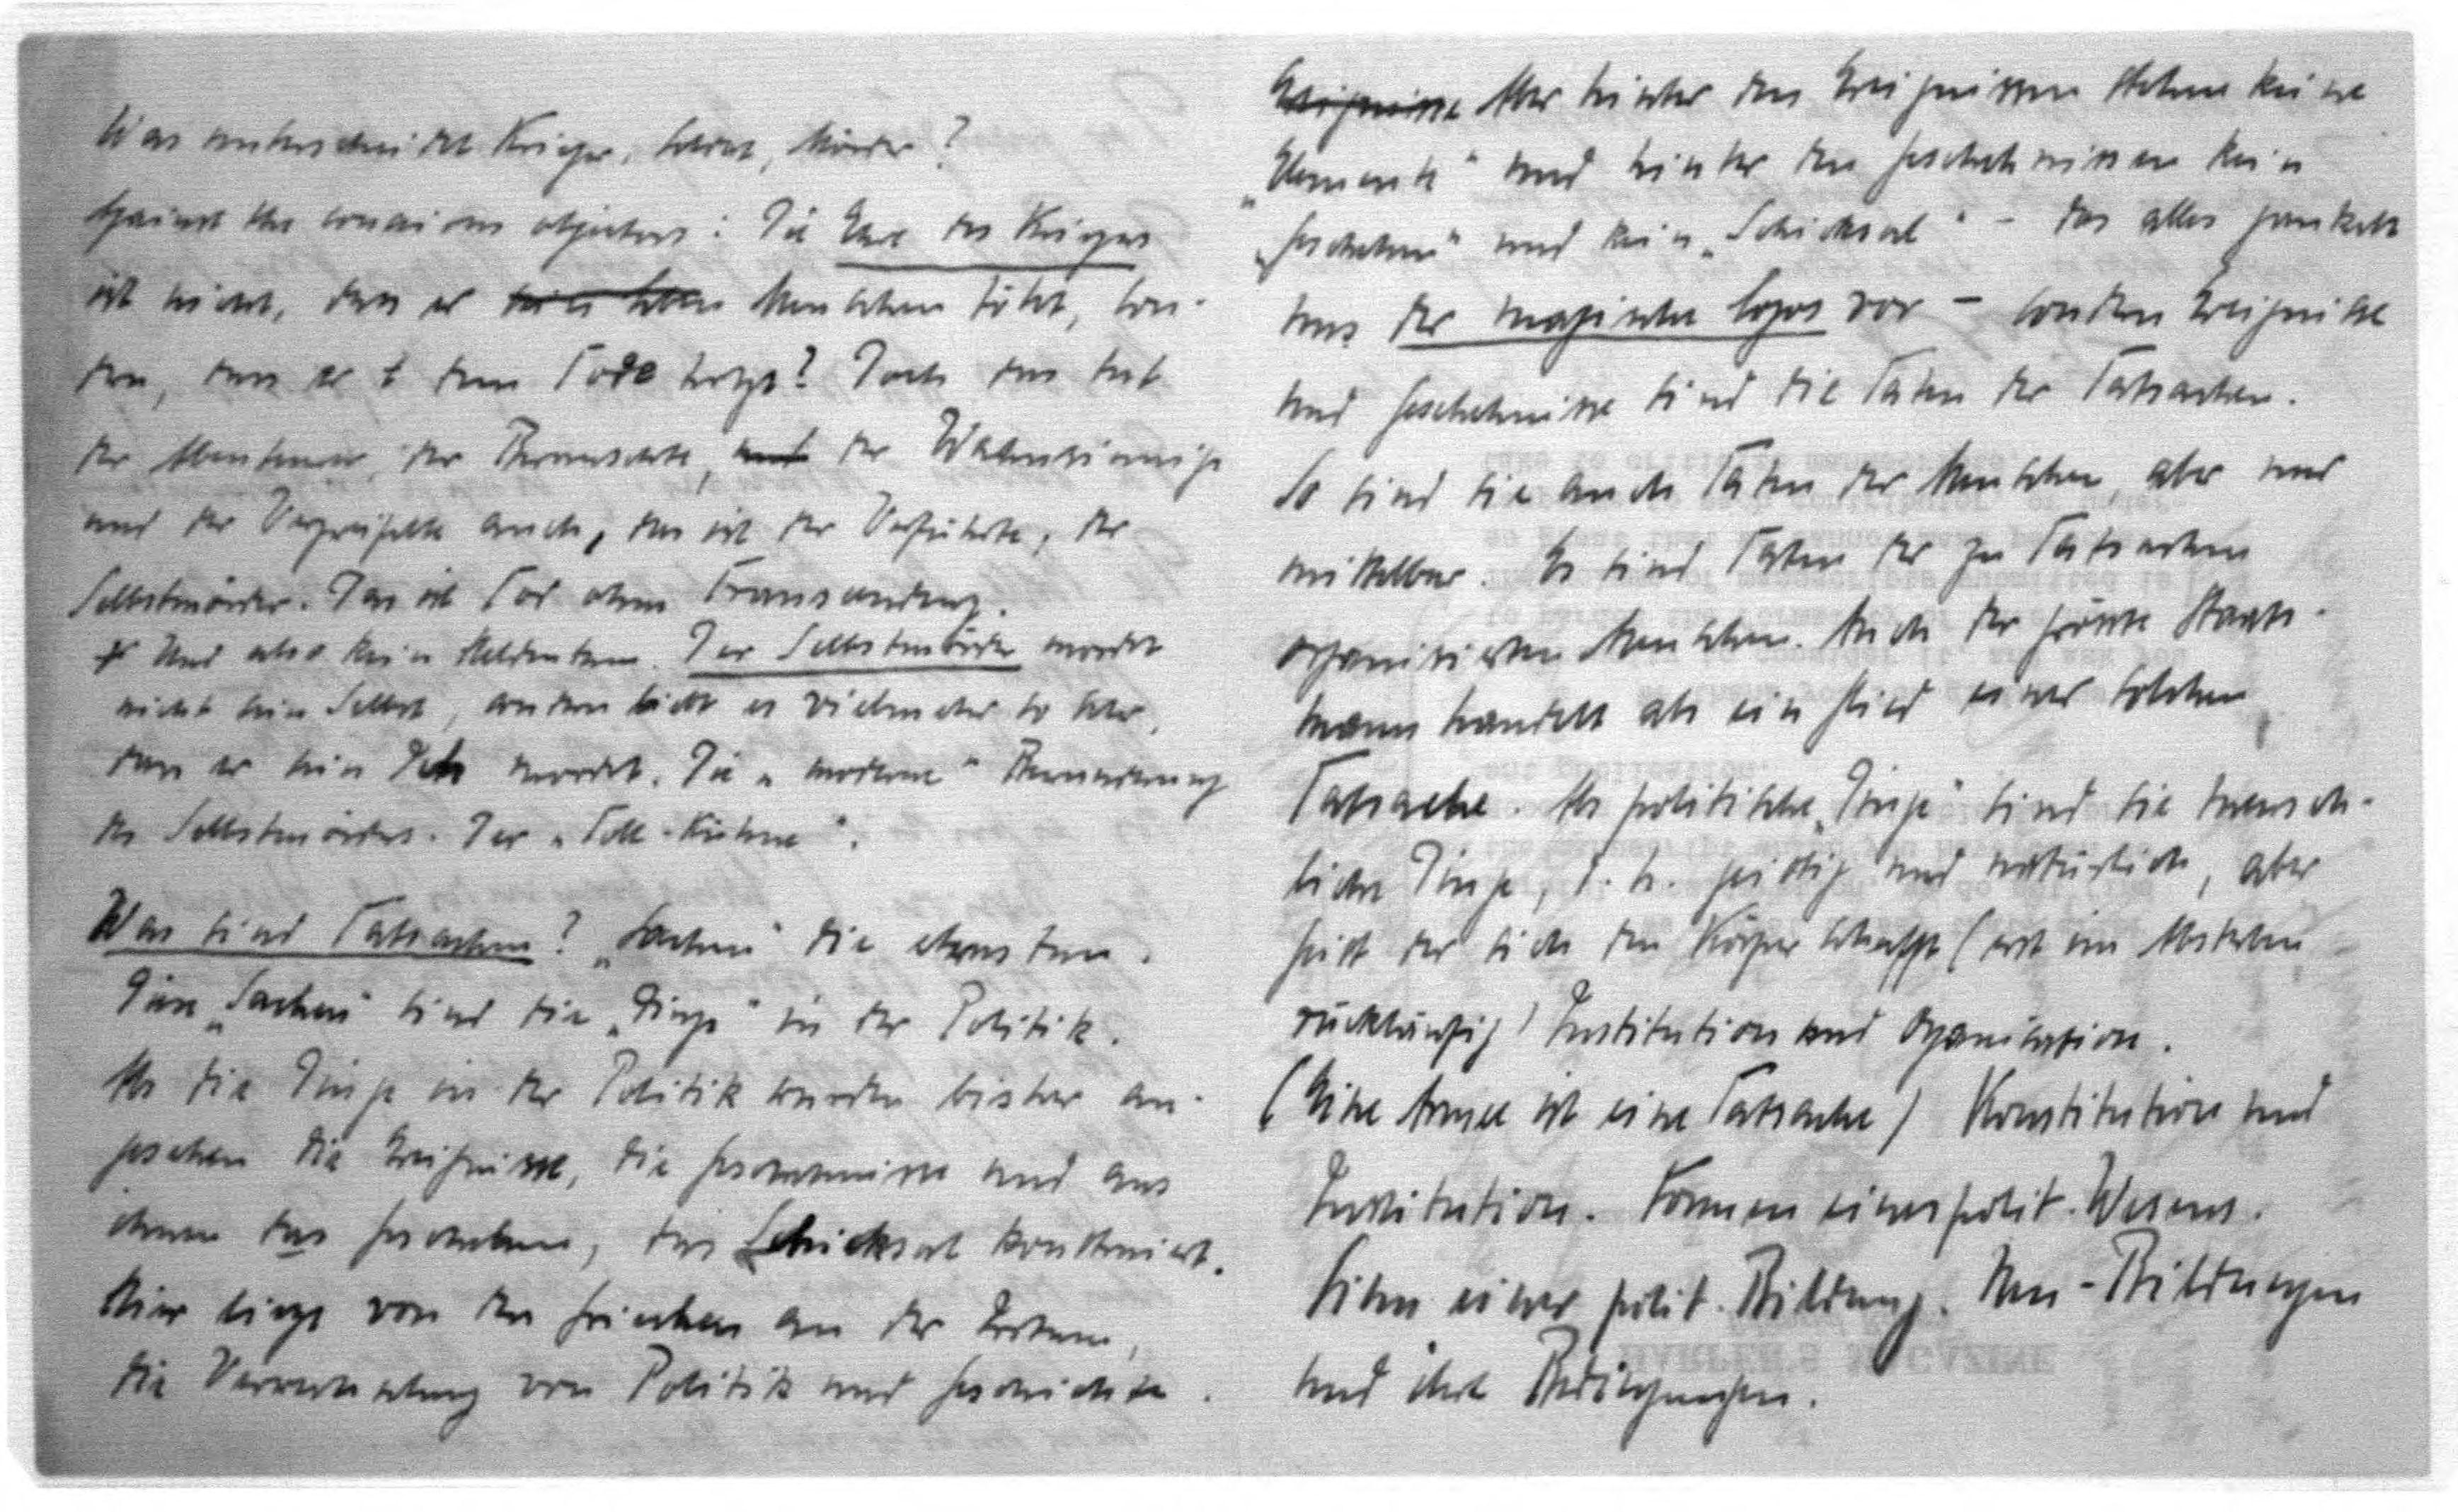 Was unterscheidet Krieger, Soldat, Mörder?
Against the conscious objectors: Die Ehre des Kriegers
ist nicht, dass er Menschen tötet, son-
dern, dass er dem Tode trotzt? Doch das tut
der Abenteurer, der Berauschte, und der Wahnsinnige
und der Verzweifelte auch, das ist der Verführte, der
Selbstmörder. Das ist Tod ohne Transzendenz.
Und also kein Heldentum. Der Selbstmörder mordet
nicht sein Selbst, sondern liebt es vielmehr so sehr,
dass er sein Ich mordet. Die „moderne" Bewunderung
des Selbstmörders. Der „Toll-Kühne".
Was sind Tatsachen? „Sachen" die etwas tun.
Diese „Sachen" sind die „Dinge" in der Politik.
Als die Dinge in der Politik wurden bisher an-
gesehen die Ereignisse, die Geschehnisse und aus
ihnen das Geschehen, das Schicksal konstruiert.
Hier liegt von den Griechen an der Irrtum,
die Verwechslung von Politik und Geschichte.
Ereignisse Aber hinter den Ereignissen stehen keine
„Elemente" und hinter den Geschehnissen kein
„Geschehen" und kein „Schicksal" – das alles gaukelt
uns der magische Logos vor – sondern Ereignisse
und Geschehnisse sind die Taten der Tatsachen.
So sind sie auch Taten der Menschen, aber nur
mittelbar. Es sind Taten der zu Tatsachen
organisierten Menschen. Auch der grösste Staats-
mann handelt als ein Glied einer solchen
Tatsache. Als politische „Dinge" sind sie mensch-
liche Dinge, d. h. geistig und natürlich, aber
Geist der sich den Körper schafft (erst im Absterben
rückläufig) Institution und Organisation.
(Eine Armee ist eine Tatsache) Konstitution und
Institution. Formen eines polit. Wesens.
einer polit. Bildung. Neu-Bildungen
und ihre Bedingungen.